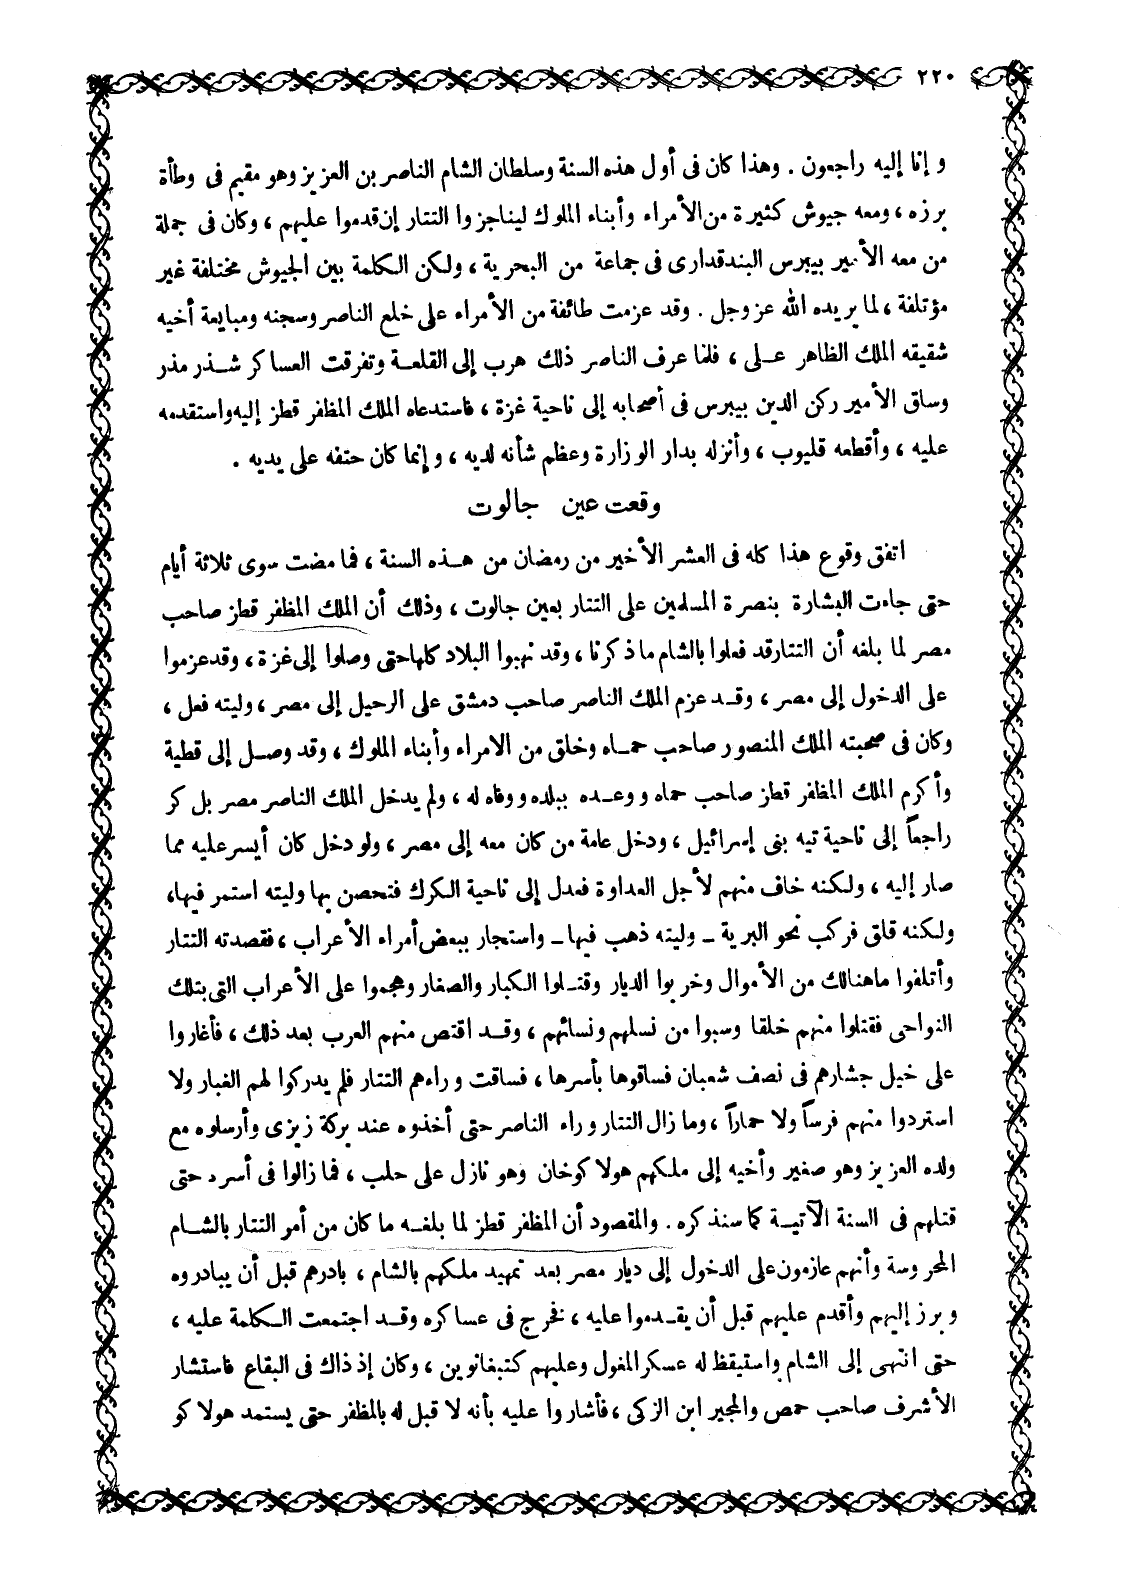 ٢٢٠
و إنا إليه راجعون . وهذا كان فى أول هذه السنة وسلطان الشام الناصر بن العزيز وهو مقيم فى وطأة
برزه ، ومعه جيوش كثيرة من الأمراء وأبناء الملوك ليناجزوا التتار إن قدموا عليهم ، وكان فى جملة
من معه الأمير بيبرس البندقدارى فى جماعة من البحرية ، ولكن الكلمة بين الجيوش مختلفة غير
مؤتلفة ، لما يريده الله عز وجل . وقد عزمت طائفة من الأمراء على خلع الناصر وسجنه ومبايعة أخيه
شقيقه الملك الظاهر عـلى ، فلما عرف الناصر ذلك هرب إلى القلعـة وتفرقت العساكر شـذر مذر
وساق الأمير ركن الدين بيبرس فى أصحابه إلى ناحية غزة ، فاستدعاه الملك المظفر قطز إليه واستقدمه
عليه ، وأقطعه قليوب ، وأنزله بدار الوزارة وعظم شأنه لديه ، و إنما كان حتفه على يديه .
وقعت عين جالوت
اتفق وقوع هذا كله فى العشر الأخير من رمضان من هـذه السنة ، فما مضت سوى ثلاثة أيام
حتى جاءت البشارة بنصرة المسلمين على التتار بعين جالوت ، وذلك أن الملك المظفر قطز صاحب
مصر لما بلغه أن التتار قد فعلوا بالشام ما ذكرنا ، وقد نهبوا البلاد كلها حتى وصلوا إلى غزة ، وقد عزموا
على الدخول إلى مصر ، وقـد عزم الملك الناصر صاحب دمشق على الرحيل إلى مصر ، وليته فعل ،
وكان فى صحبته الملك المنصور صاحب حمـاه وخلق من الامراء وأبناء الملوك ، وقد وصـل إلى قطية
وأكرم الملك المظفر قطز صاحب حماه ووعـده ببلده ووفاه له ، ولم يدخل الملك الناصر مصر بل كر
راجعاً إلى ناحية تيه بنى إسرائيل ، ودخل عامة من كان معه إلى مصر ، ولو دخل كان أيسر عليه مما
صار إليه ، ولكنه خاف منهم لأجل العداوة فعدل إلى ناحية الكرك فتحصن بها وليته استمر فيها،
ولكنه قلق فركب نحو البرية ــ وليته ذهب فيها ــ واستجار ببعض أمراء الأعراب ، فقصدته التتار
وأتلفوا ما هنالك من الأموال وخربوا الديار وقتـلوا الكبار والصغار وهجموا على الأعراب التى بتلك
النواحى فقتلوا منهم خلقا وسبوا من نسلهم ونسائهم ، وقـد اقتص منهم العرب بعد ذلك ، فأغاروا
على خيل جشارهم فى نصف شعبان فساقوها بأسرها ، فساقت وراءهم التتار فلم يدركوا لهم الغبار ولا
استردوا منهم فرساً ولا حماراً ، وما زال التتار وراء الناصر حتى أخذوه عند بركة زيزى وأرسلوه مع
ولده العزيز وهو صغير وأخيه إلى ملكهم هولاكوخان وهو نازل على حلب ، فما زالوا فى أسره حتى
قتلهم فى السنة الآتيـة كما سنذكره . والمقصود أن المظفر قطز لما بلغـه ما كان من أمر التتار بالشـام
المحروسة وأنهم عازمون على الدخول إلى ديار مصر بعد تمهيد ملكهم بالشام ، بادرهم قبل أن يبادروه
و برز إليهم وأقدم عليهم قبل أن يقـدموا عليه ، فخرج فى عساكره وقـد اجتمعت الـكلمة عليه ،
حتى انتهى إلى الشام واستيقظ له عسكر المغول وعليهم كتبغانوين ، وكان إذ ذاك فى البقاع فاستشار
الأشرف صاحب حمص والمجير ابن الزكى ، فأشاروا عليه بأنه لا قبل له بالمظفر حتى يستمد هولا كو